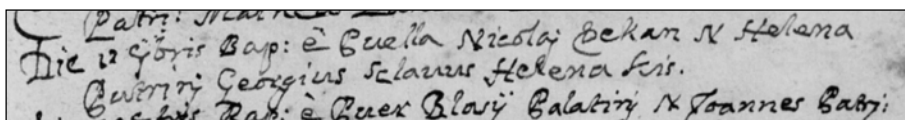 Patri: Math
Die 12 Bap: è Puella Nicolaj Pekan N Helena
Patrinj Georgius Sclavus Helena
Bap: è Puer Blasÿ Palatinj N Joannes Patrj: